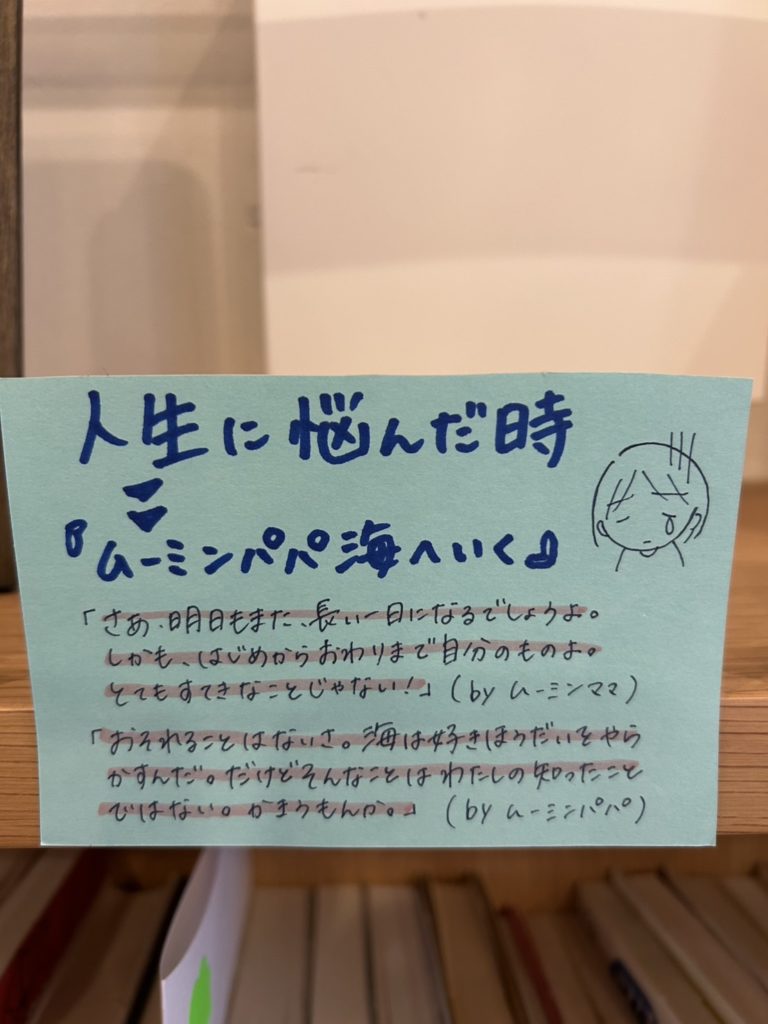 人生に悩んだ時
『ムーミンパパ海へいく』
「さあ、明日もまた、長い一日になるでしょうよ。
しかも、はじめからおわりまで自分のものよ。
とてもすてきなことじゃない!」(by ムーミンママ)
「おそれることはないさ。海は好きほうだいをやら
かすんだ。だけどそんなことはわたしの知ったこと
ではない。かまうもんか。」(by ムーミンパパ)